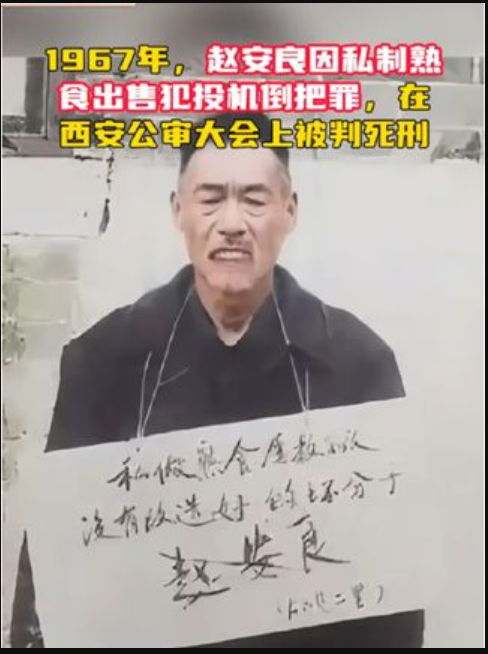 1967年，赵安良因私制熟
食出售犯投机倒把罪，在
西安公审大会上被判死刑
私做熟食屡教不改
没有改造好 的坏分子
赵安良
二里）